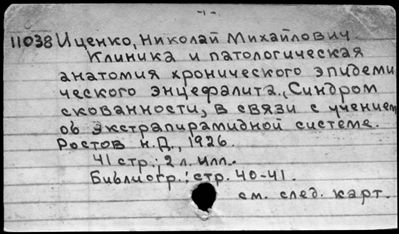 11038 Иценко, Николай Михайлович.
Клиника и патологическая
анатомия хронического эпидеми
ческого энцефалита. Синдром
скованности, в связи с учением
об экстрапирамидной системе.
Ростов н.Д., 1926.
41 стр.; 2 л. илл.
Библиогр.: стр. 40-41.
см. след. карт.